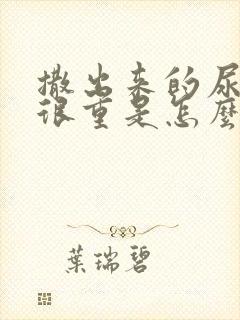 撒出来的尿
很重是怎麼
葉瑞碧